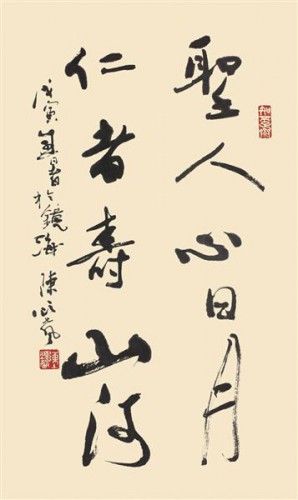 聖人心日月
仁者壽山河
戊寅年書於鏡海 陳